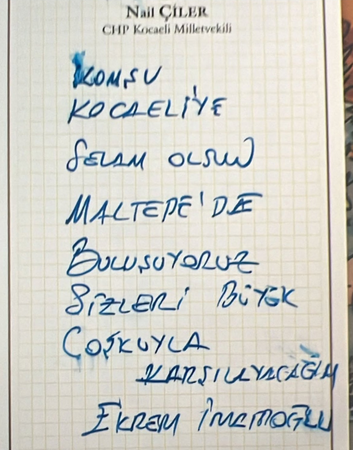 Nail ÇİLER
CHP Kocaeli Milletvekili
KOMŞU
KOCAELİYE
SELAM OLSUN
MALTEPE'DE
BULUŞUYORUZ
SİZLERİ BÜYÜK
COŞKUYLA
KARŞILAYACAĞIM
EKREM İMAMOĞLU